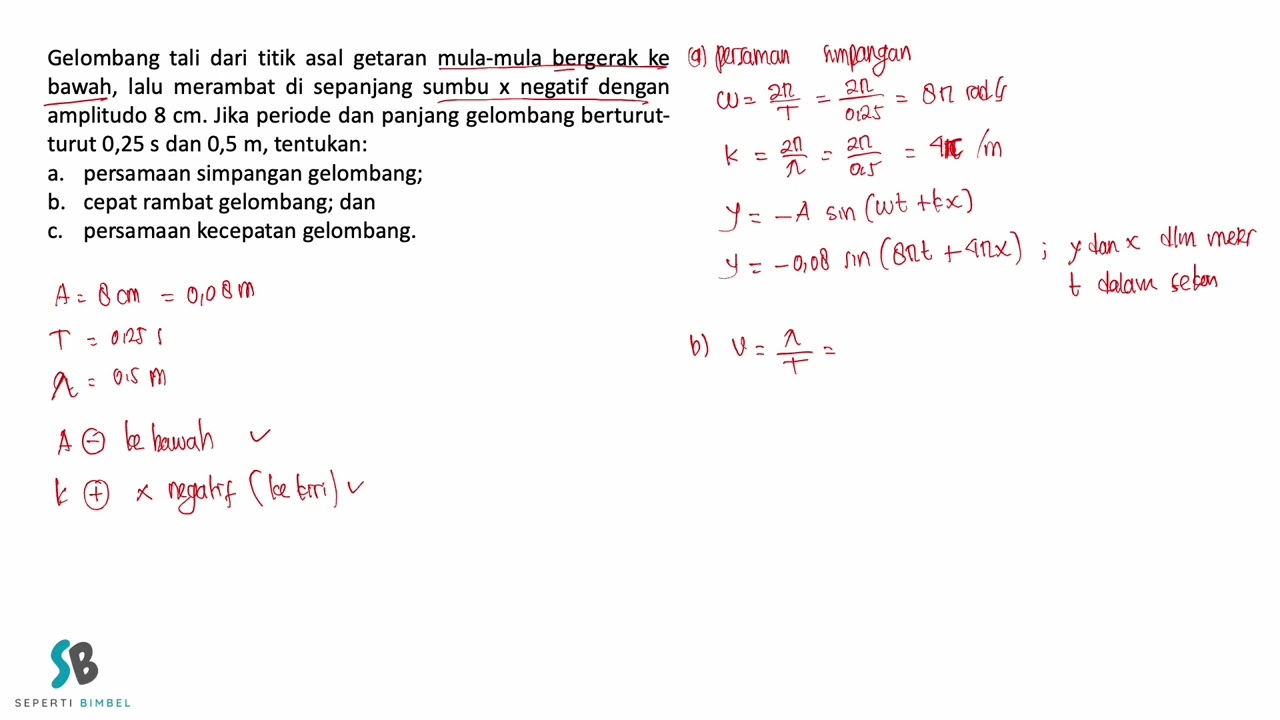 Gelombang tali dari titik asal getaran mula-mula bergerak ke
bawah, lalu merambat di sepanjang sumbu x negatif dengan
amplitudo 8 cm. Jika periode dan panjang gelombang berturut-
turut 0,25 s dan 0,5 m, tentukan:
a. persamaan simpangan gelombang;
b. cepat rambat gelombang; dan
c. persamaan kecepatan gelombang.
A = 8 cm = 0,08 m
T = 0,25 s
λ = 0,5 m
A ⊖ ke bawah ✓
k ⊕ x negatif (ke kiri) ✓
a) persaman simpangan
ω = 2π/T = 2π/0,25 = 8π rad/s
k = 2π/λ = 2π/0,5 = 4π /m
y = -A sin (ωt + kx)
y = -0,08 sin (8πt + 4πx) ; y dan x dlm meter
t dalam sekon
b) v = λ/T =
SB
SEPERTI BIMBEL